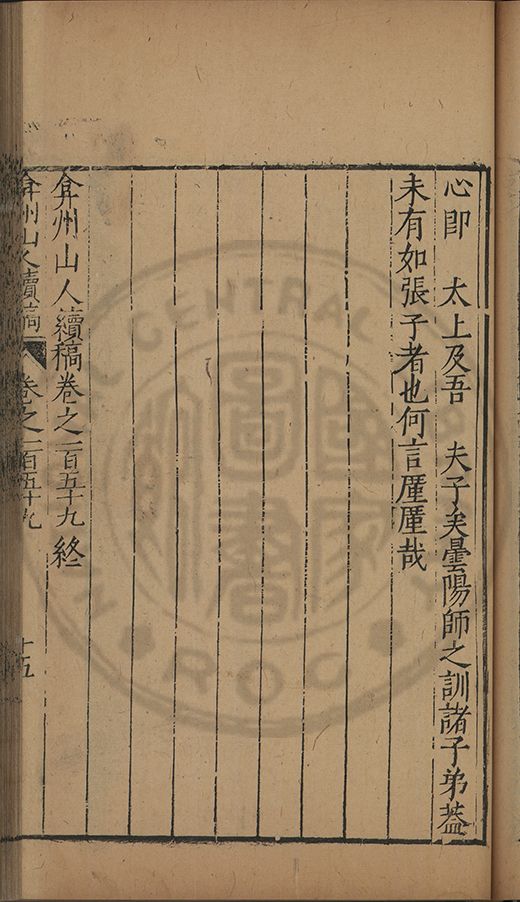 心即　太上及吾　夫子矣曇陽師之訓諸子弟葢
未有如張子者也何言厪厪哉
弇州山人續稿卷之一百五十九終
弇州山人續稿　卷之一百五十九　十五
CENTRAL
ROC
圖
書